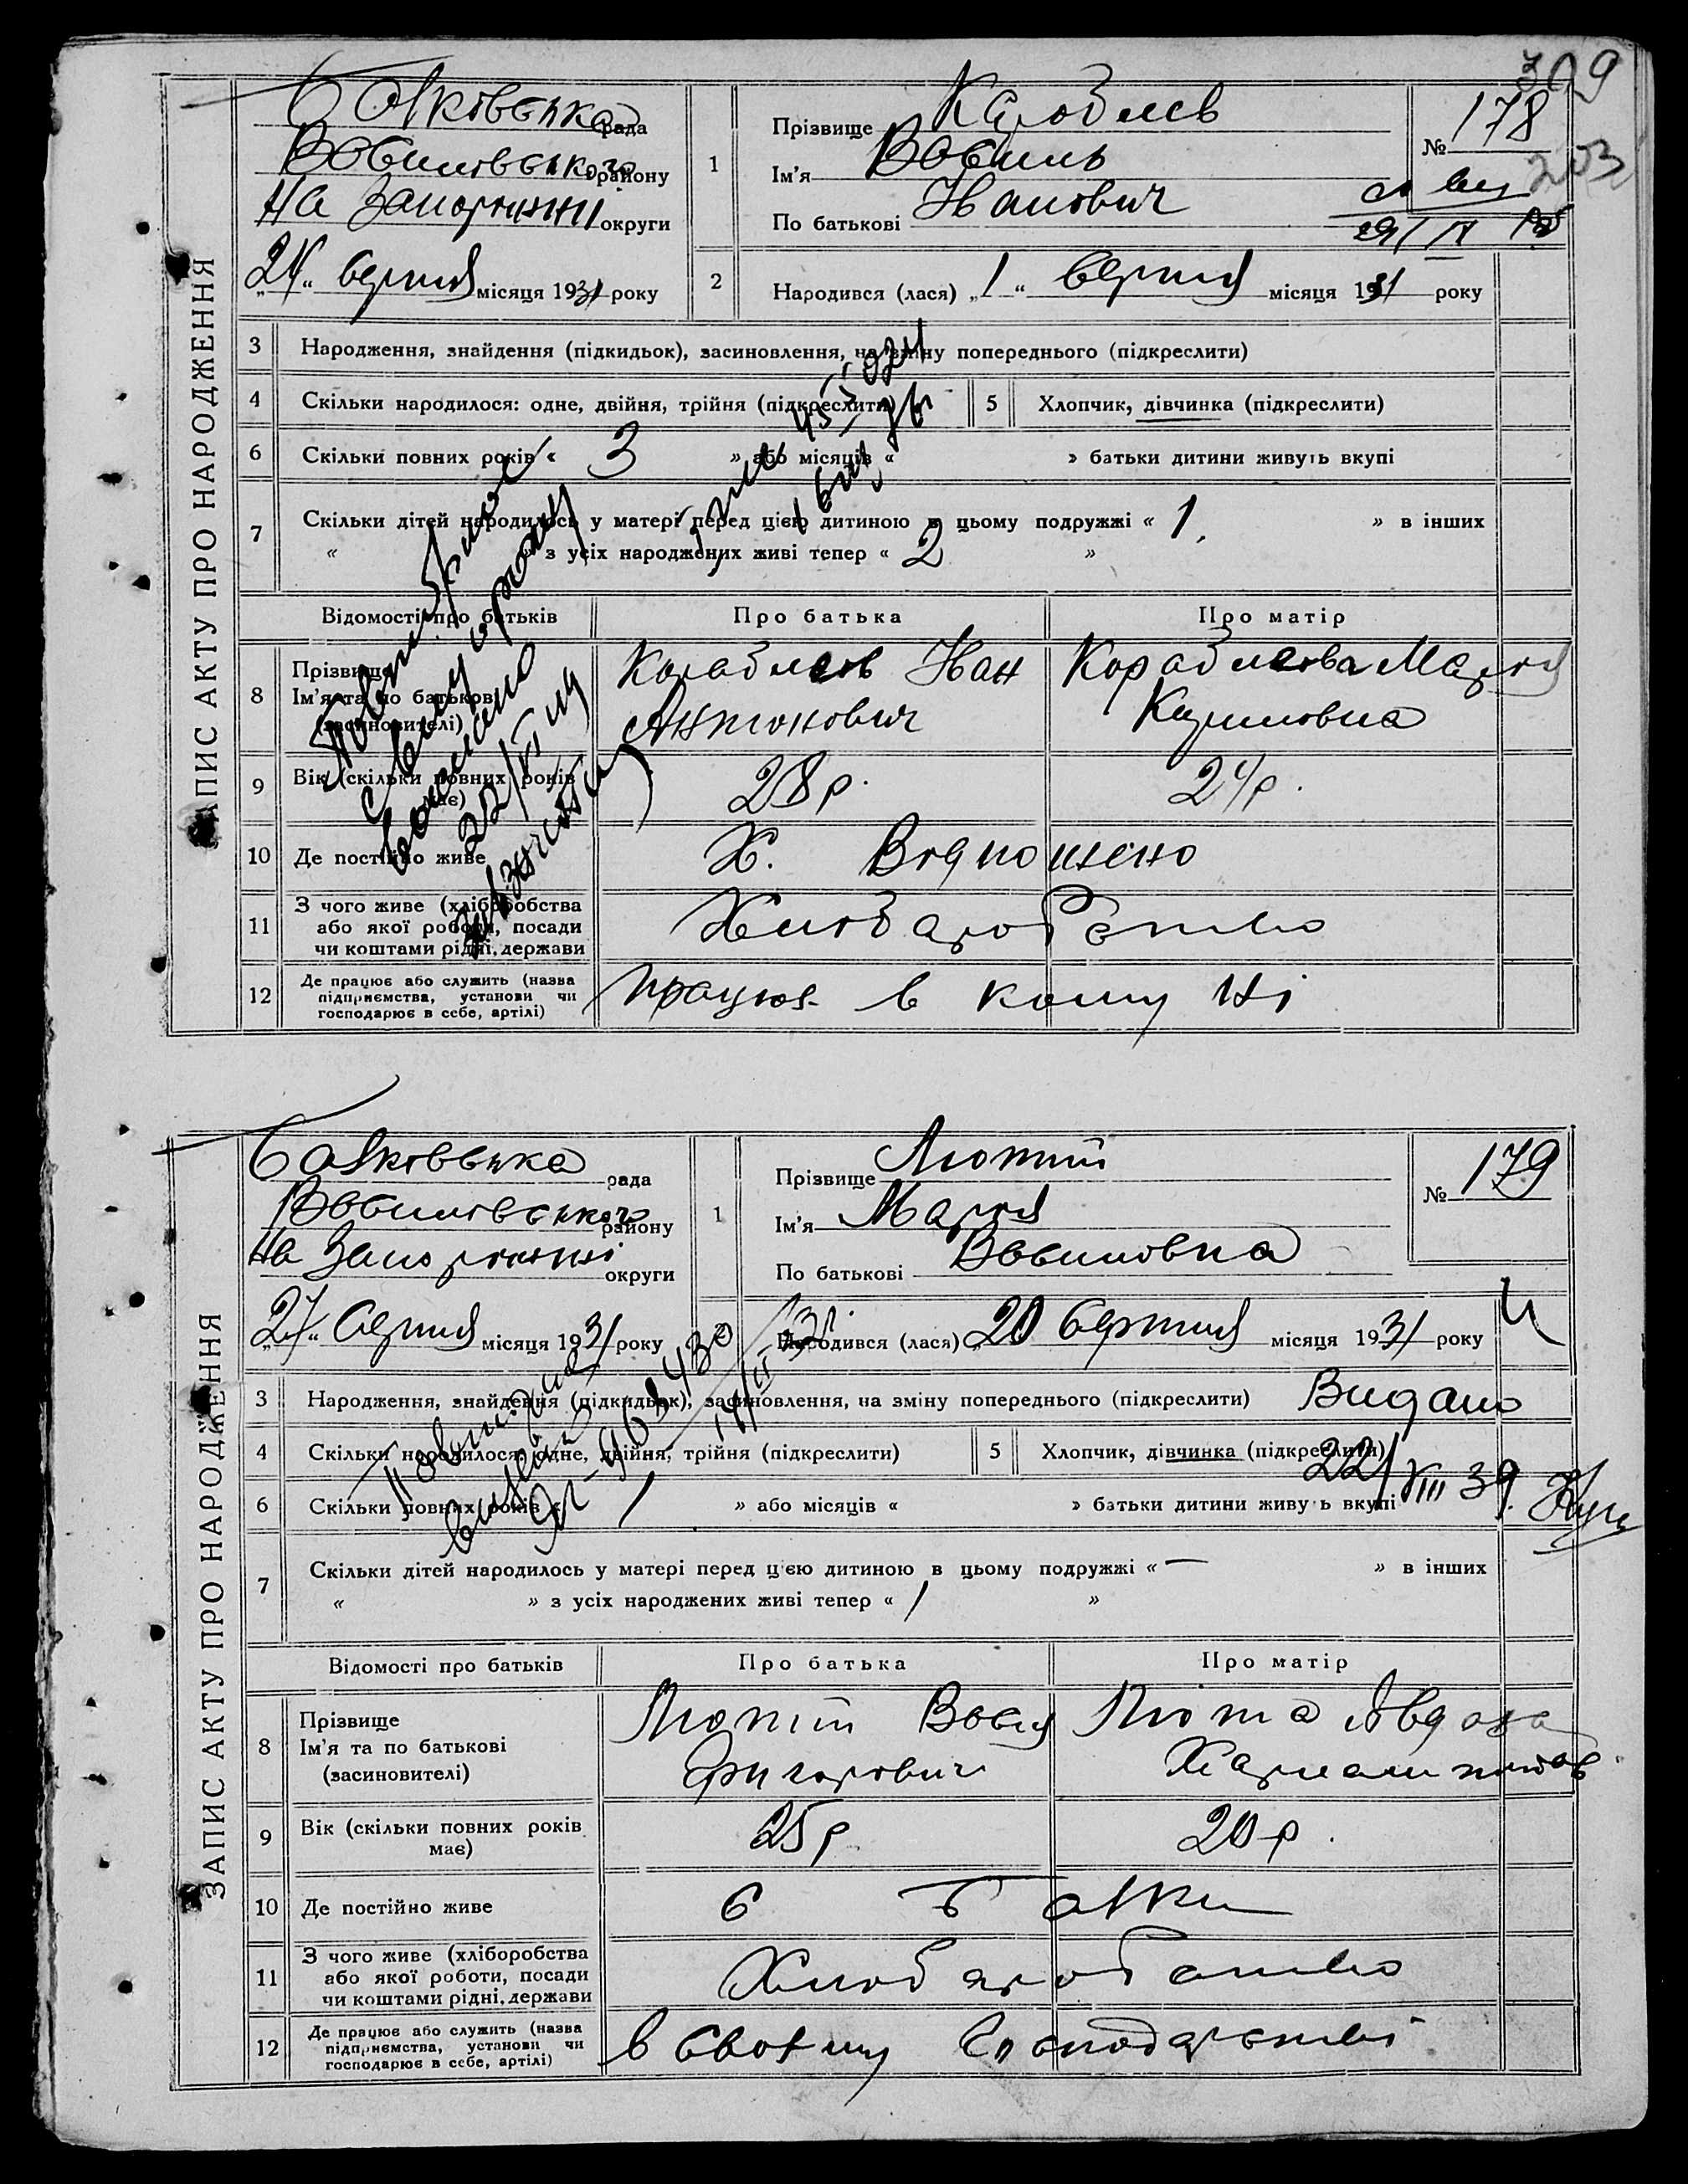 309
203
ЗАПИС АКТУ ПРО НАРОДЖЕННЯ
Балковська рада
Василівського району
На Запоріжжі округи
„24“ серпня місяця 1931 року
1
Прізвище Караблев
Ім’я Василь
По батькові Іванович
№ 178
2
Народився (лася) „1“ серпня місяця 1931 року
3 Народження, знайдення (підкидьок), засиновлення, на зміну попереднього (підкреслити)
4 Скільки народилося: одне, двійня, трійня (підкреслити)
5 Хлопчик, дівчинка (підкреслити)
6 Скільки повних років « 3 » або місяців « » батьки дитини живуть вкупі
7 Скільки дітей народилось у матері перед цією дитиною в цьому подружжі « 1 » в інших
« » з усіх народжених живі тепер « 2 »
Відомості про батьків Про батька Про матір
8 Прізвище
Ім’я та по батькові
(засиновителі)
Караблев Іван
Антонович
Кораблева Марія
9 Вік (скільки повних років
має)
28 р.
24 р.
10 Де постійно живе
Х.
11 З чого живе (хліборобства
або якої роботи, посади
чи коштами рідні, держави
Хліборобство
12 Де працює або служить (назва
підприємства, установи чи
господарює в себе, артілі)
працює в комуні
ЗАПИС АКТУ ПРО НАРОДЖЕННЯ
Балковська рада
Василівського району
На Запоріжжі округи
„27“ серпня місяця 1931 року
1
Прізвище Лютий
Ім’я Марія
По батькові Василовна
№ 179
Народився (лася) „20 серпня місяця 1931 року
3 Народження, знайдення (підкидьок), засиновлення, на зміну попереднього (підкреслити)
Видано
4 Скільки народилося: одне, двійня, трійня (підкреслити)
5 Хлопчик, дівчинка (підкреслити)
22/VIII 39.
6 Скільки повних років « 1 » або місяців « » батьки дитини живуть вкупі
7 Скільки дітей народилось у матері перед цією дитиною в цьому подружжі « — » в інших
« » з усіх народжених живі тепер « 1 »
Відомості про батьків Про батька Про матір
8 Прізвище
Ім’я та по батькові
(засиновителі)
Лютий Васил
Григорович
Люта
9 Вік (скільки повних років
має)
25 р.
20 р.
10 Де постійно живе
с Балки
11 З чого живе (хліборобства
або якої роботи, посади
чи коштами рідні, держави
Хліборобство
12 Де працює або служить (назва
підприємства, установи чи
господарює в себе, артілі)
в своєму господарстві